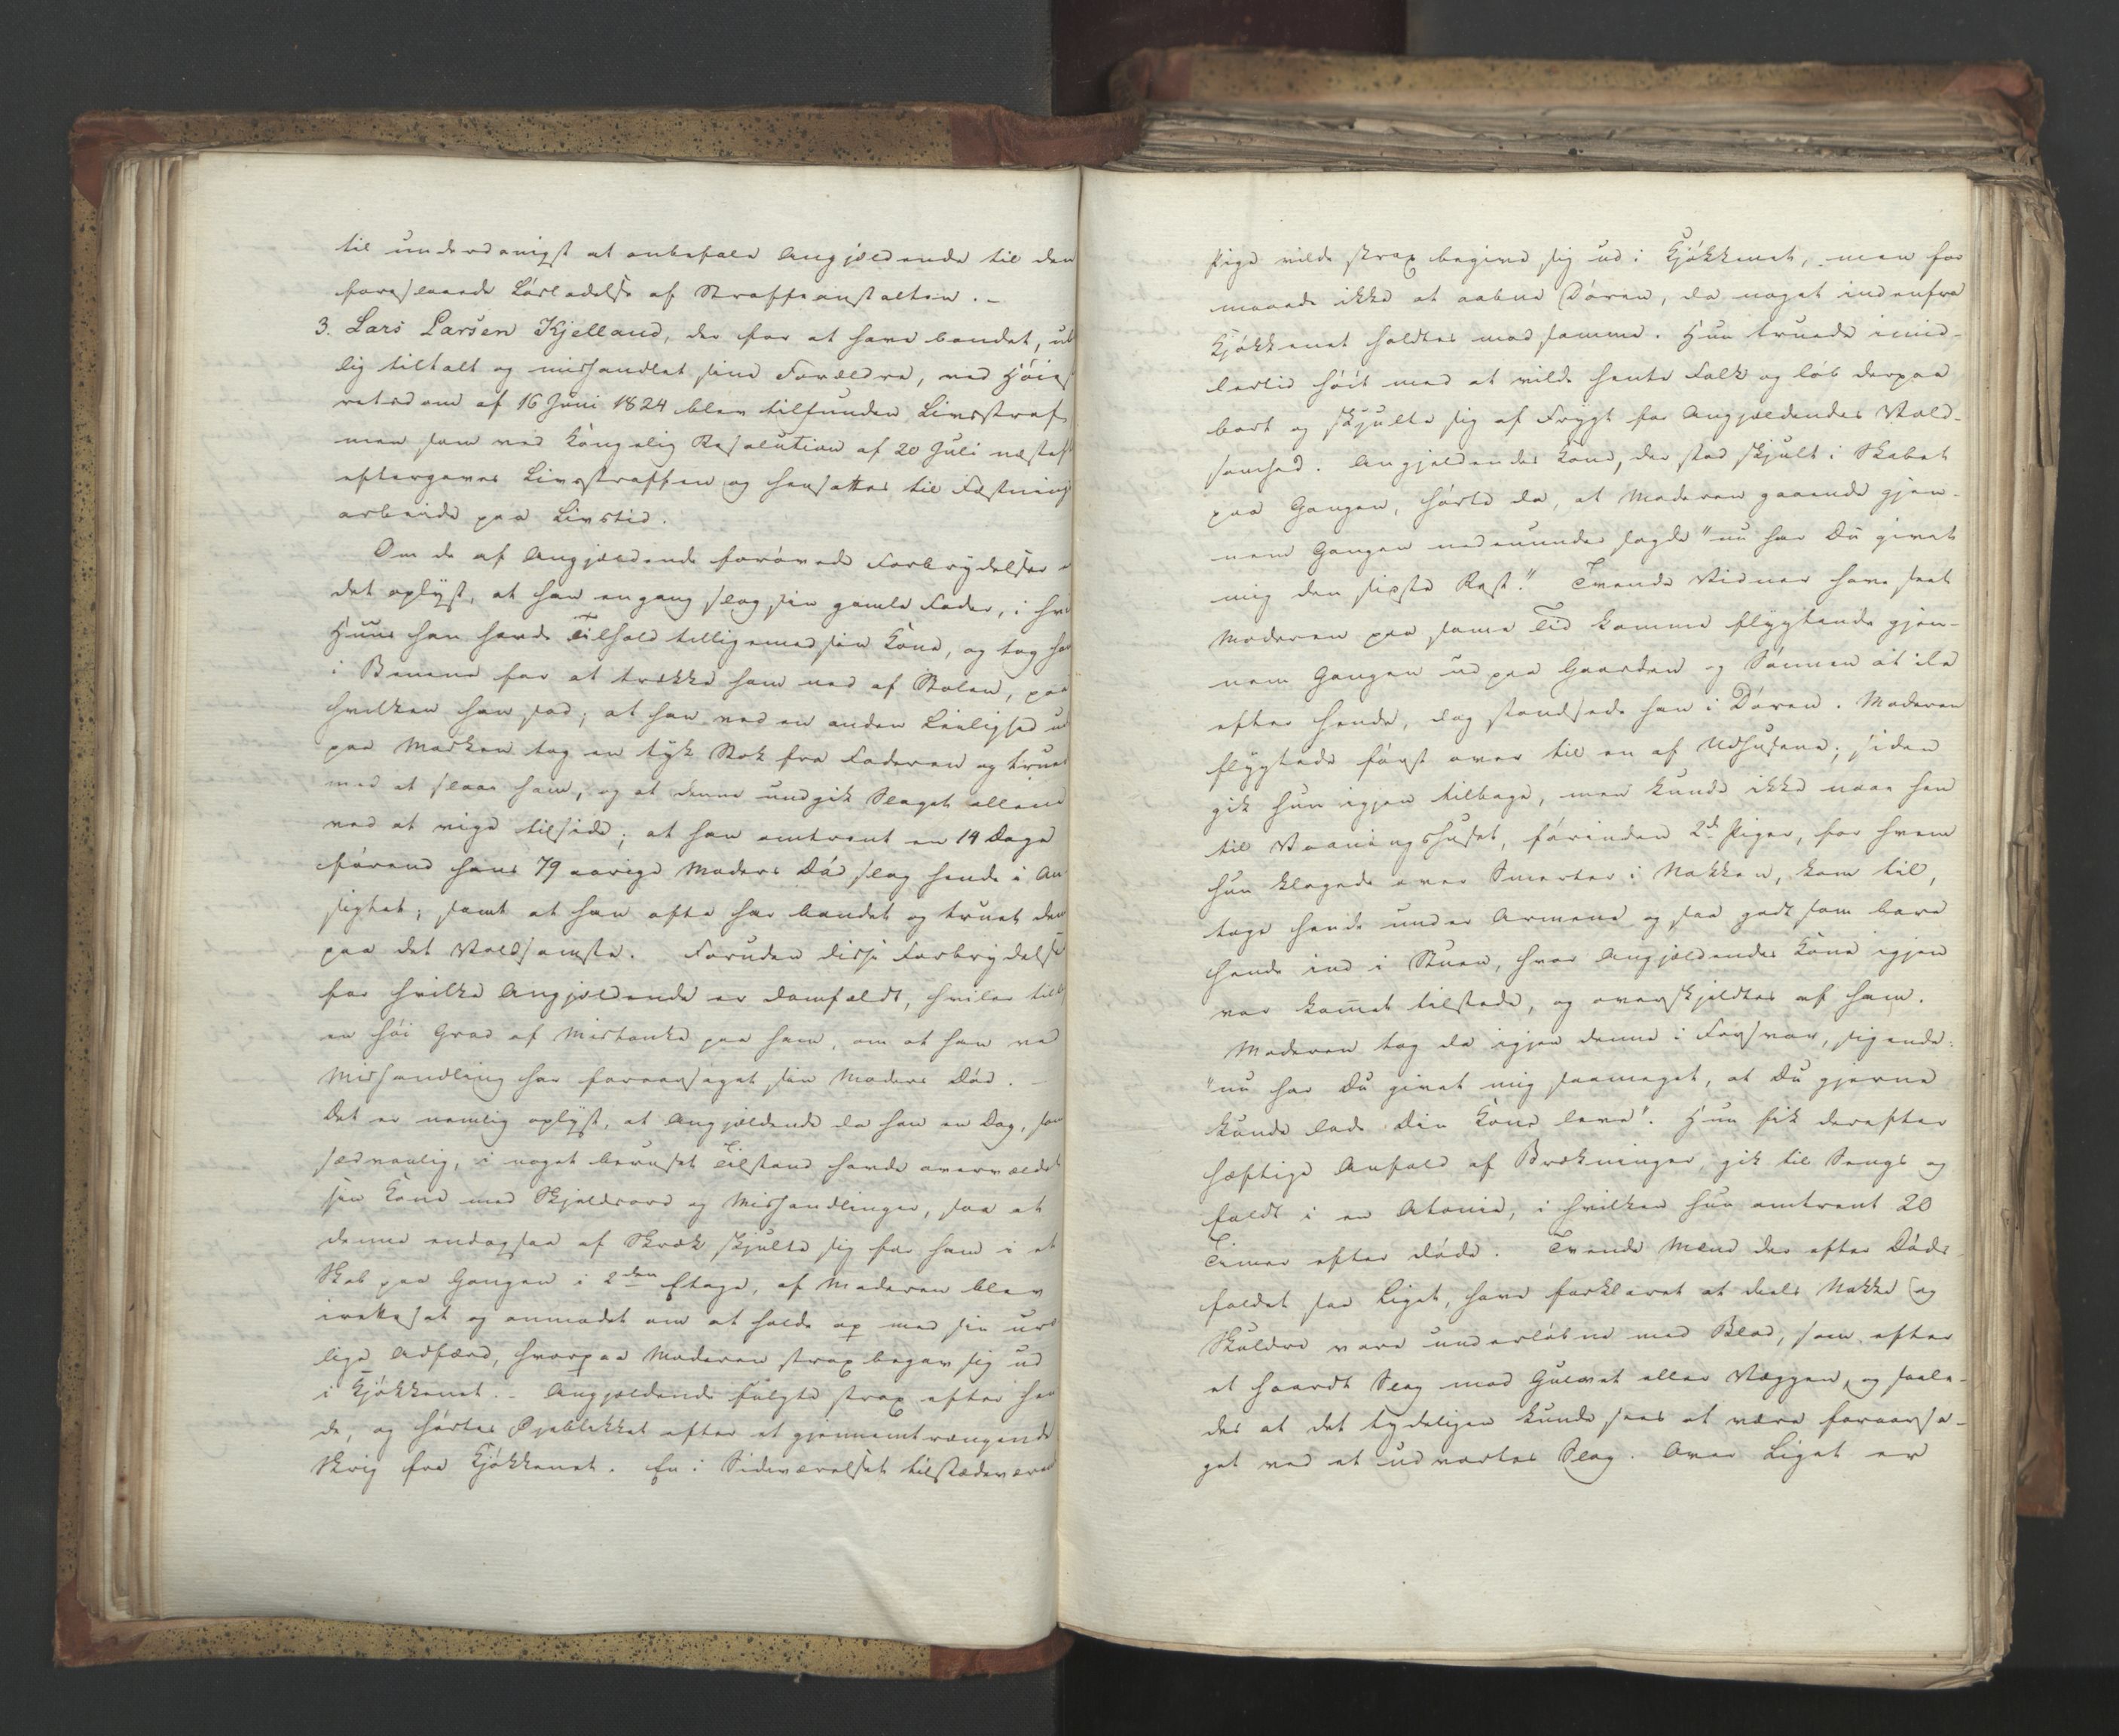 til underdanigst at anbefale Angjeldende til den
foreslaaede Løsladelse af Straffeanstalten. -
3. Lars Larsen Kjelland, der for at have bandet, ub
lig tiltalt og mishandlet sine Forældre, ved Høies
retsdom af 16 Juni 1824 blev tilfunden Livsstraf
men som ved Kongelig Resolution af 20 Juli næstef
eftergaves Livsstraffen og hensattes til Fæstnings
arbeide paa Livstid.
Om de af Angjældende forøvede Forbrydelser e
det oplyst, at han engang slog sin gamle Fader, i hvi
Huus han havde Tilhold tilligemed sin Kone, og tog ham
i Benene for at trække ham ned af Stolen, paa
hvilken han sad; at han ved en anden Leilighed ud
paa Marken tog en tyk Stok fra Faderen og truet
med at slaae ham, og at denne undgik Slaget allene
ved at vige tilside; at han omtrent en 14 Dage
førend hans 79 aarige Moders Død slog hende i An
sigtet; samt at han ofte har bandet og truet dem
paa det Voldsomste. Foruden disse Forbrydelser
for hvilke Angjældende er domfældt, hviler tillig
en høi Grad af Mistanke paa ham, om at han ved
Mishandling har foraarsaget sin Moders Død. -
Det er nemlig oplyst, at Angjældende da han en Dag, som
sædvanlig, i noget beruset Tilstand havde overvældet
sin Kone med Skjeldsord og Mishandlinger, saa at
denne endogsaa af Skræk skjulte sig for ham i et
Skab paa Gangen i 2den Etage, af Moderen blev
irettesat og anmodet om at holde op med sin usæ
lige Adfærd, hvorpaa Moderen strax begav sig ud
i Kjøkkenet. - Angjældende fulgte strax efter hen
de, og hørtes Øjeblikket efter et gjennemtrængende
Skrig fra Kjøkkenet. En i Sideværelset tilstædeværende
Pige vilde strax begive sig ud i Kjøkkenet, men for
maaede ikke at aabne Døren, da noget indenfra
Kjøkkenet holdtes mod samme. Hun truede imid-
lertid høit med at vilde hente Folk og løb derpaa
bort og skjulte sig af Frygt for Angjældendes Vold-
somhed. Angjældendes Kone, der stod skjult i Skabet
paa Gangen, hørte da, at Moderen gaaende gjen-
nem Gangen nedenunder sagde "nu har Du givet
mig den sidste Rest." Tvende Vidner have seet
Moderen paa samme Tid komme flygtende gjen-
nem Gangen ud paa Gaarden og Sønnen at ile
efter hende, dog standsede han i Døren. Moderen
flygtede først over til en af Udhusene; siden
gik hun igjen tilbage, men kunde ikke naae hen
til Vaaningshuset, førinden 2de Piger, for hvem
hun klagede over Smerter i Nakken, kom til,
toge hende under Armene og saa godt som bare
hende ind i Stuen, hvor Angjældendes Kone igjen
var kommet tilstede, og overskjeldtes af ham.
Moderen tog da igjen denne i Forsvar, sigende:
"nu har Du givet mig saameget, at Du gjerne
kunde lade Din Kone leve". Hun fik derefter
hæftige Anfald af Brækninger, gik til Sengs og
faldt i en Atonie, i hvilken hun omtrent 20
Timer efter døde. Tvende Mænd der efter Døds
faldet saae Liget, have forklaret at deels Nakke og
Skuldre vare underløbne med Blod, som efter
et haardt Slag mod Gulvet eller Væggen, og saale-
des at det tydeligen kunde sees at være foraarsa-
get ved et udvortes Slag. Over Liget er